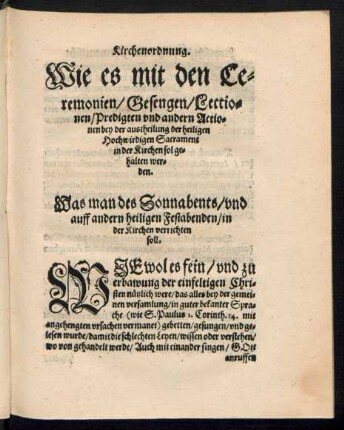 Kirchenordnung.
Wie es mit den Ce-
remonien/Gesengen/Lectio-
nen/Predigten vnd andern Actio-
nen bey der austheilung der heiligen
Hochwirdigen Sacrament
in der Kirchen sol ge-
halten wer-
den.
Was man des Sonnabents/vnd
auff andern heiligen Festabenden/in
der Kirchen verrichten
soll.
WIEwol es fein/vnd zu
erbawung der einfeltigen Chri-
sten nützlich were/das alles bey der gemei-
nen versamlung/in guter bekanter Spra-
che (wie S. Paulus 1. Corinth. 14. mit
angehengten vrsachen vermanet) gebetten/gesungen/vnd ge-
lesen wurde/damit die schlechten Leyen/wissen oder verstehen/
wo von gehandelt werde/Auch mit einander singen/GOtt
anruffen